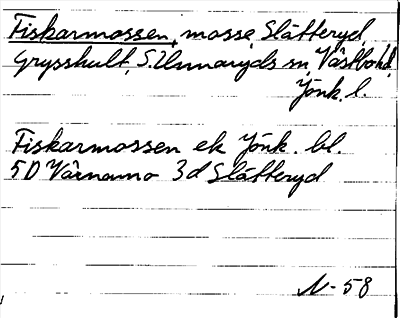 Fiskarmossen, mosse, Slätteryd,
Grysshult, S. Unnaryds sn Västbohd,
Jönk. l.
Fiskarmossen ek Jönk. bl.
5D Värnamo 3d Slätteryd
N-58